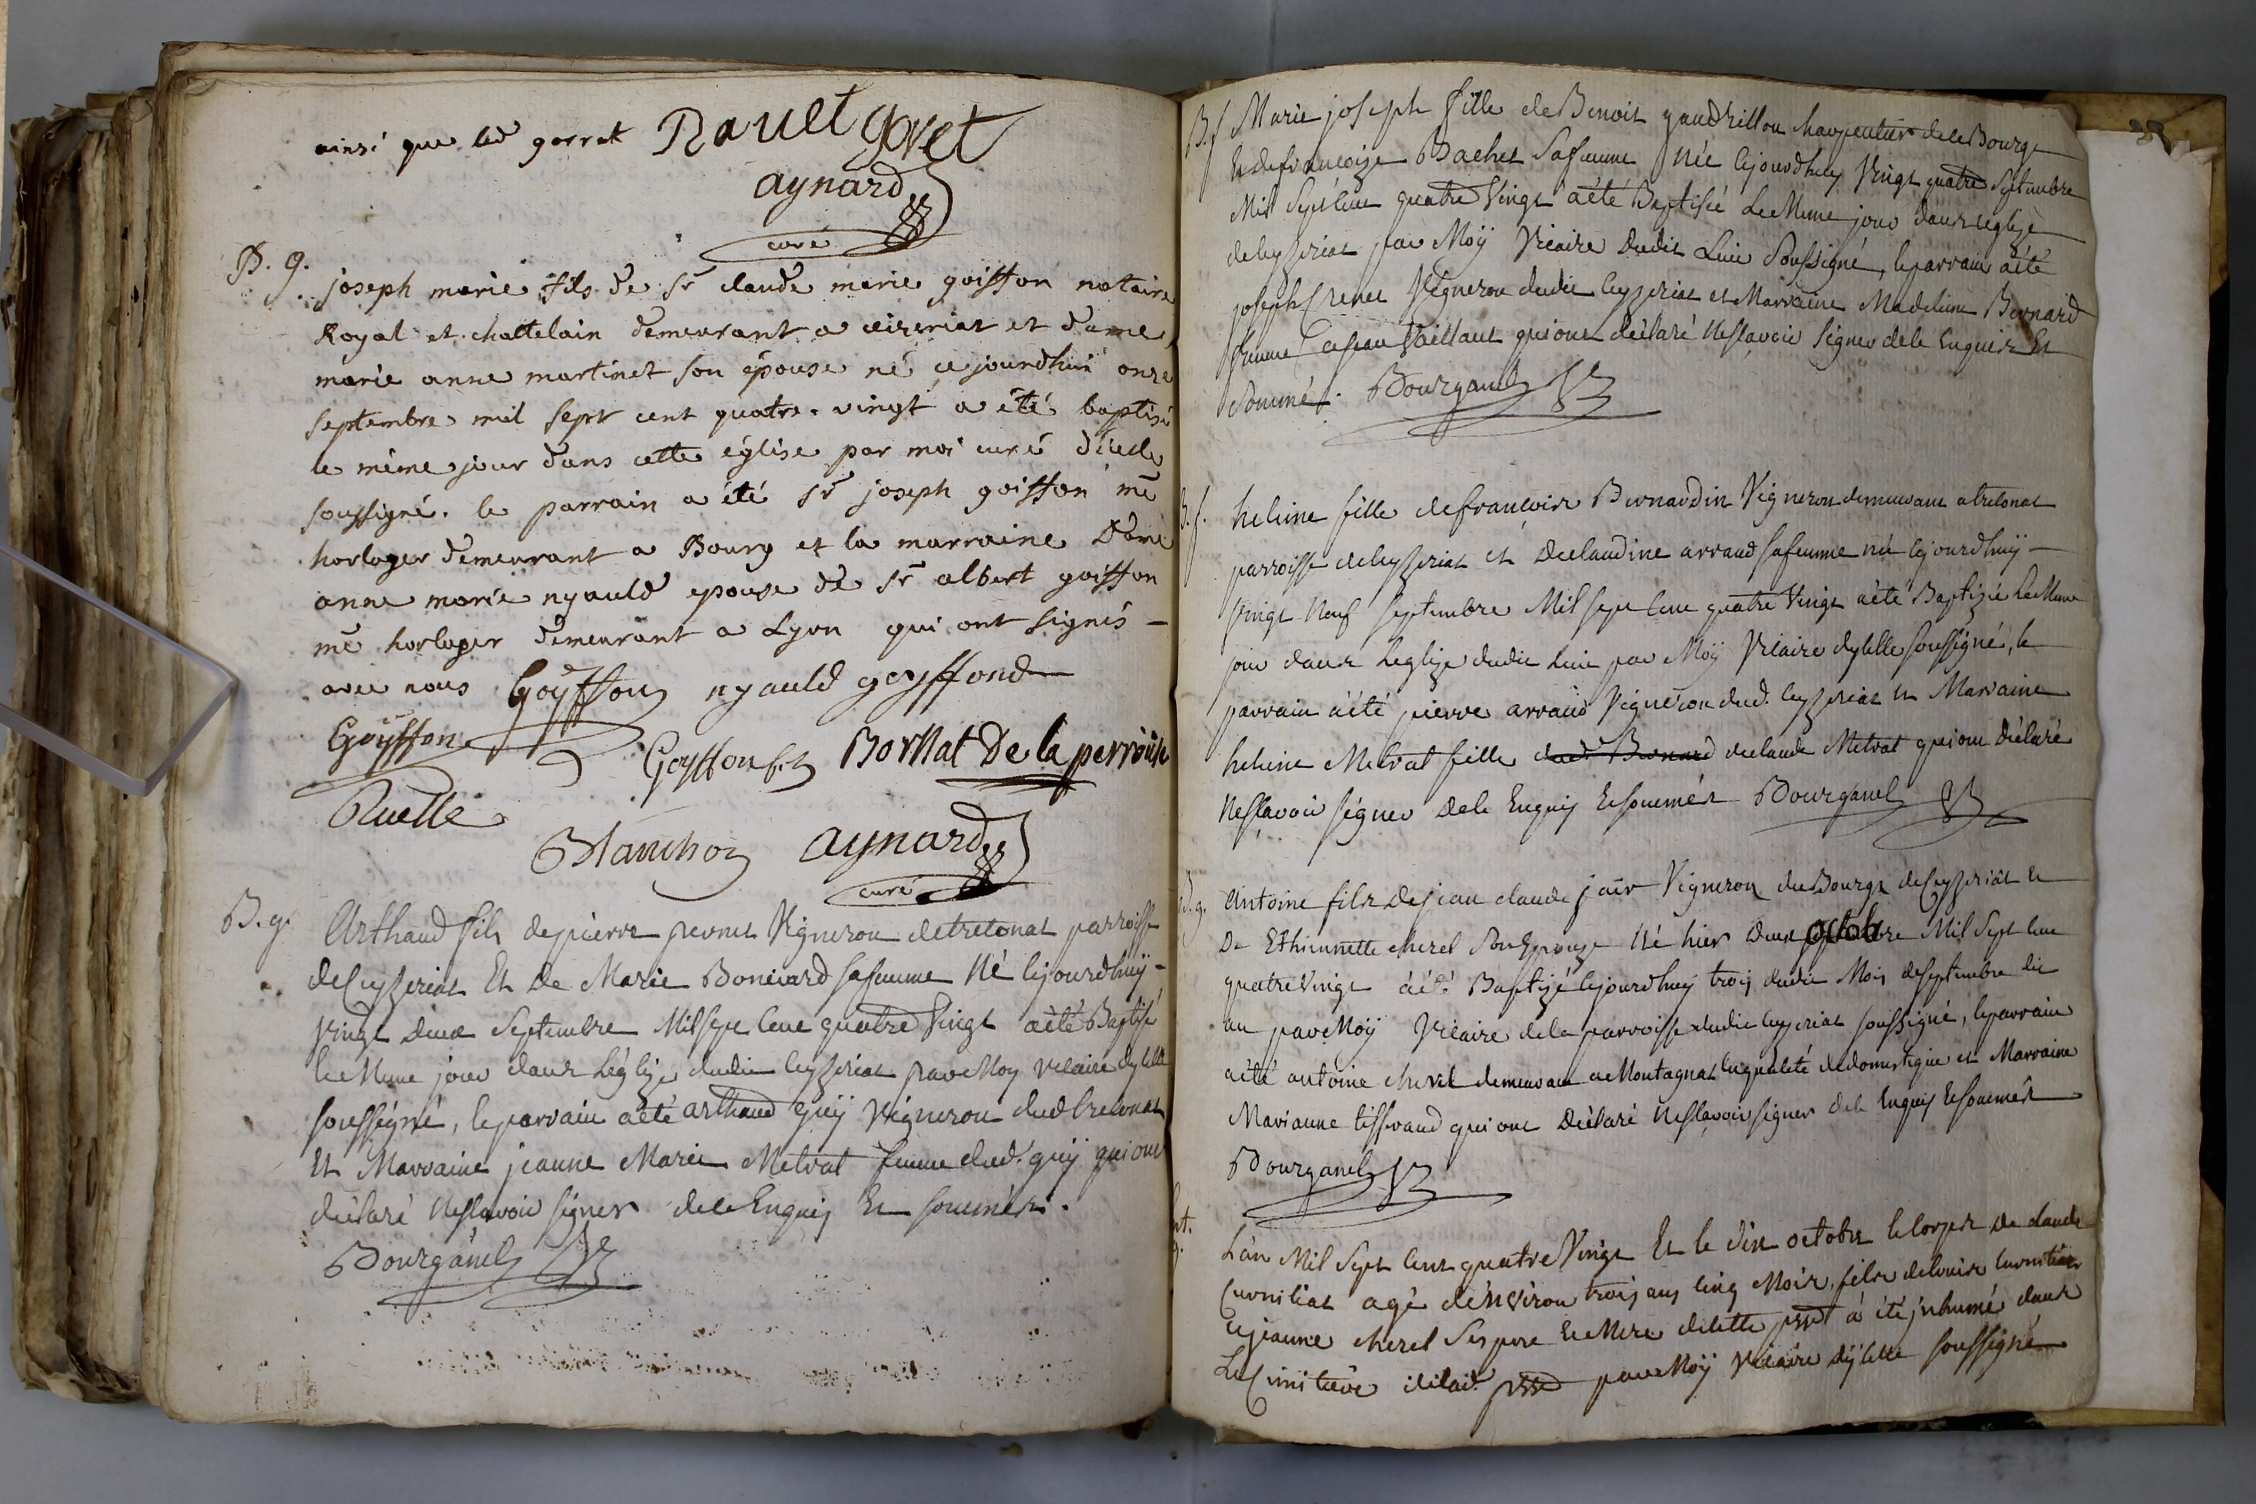 ainsi que led gorret Rault Goret
aynard
curé
B. g.
joseph marie fils de Sr claude marie goiffon notaire
Royal et chattelain demeurant a ceizeriat et dame
marie anne martinet son épouse né ce jourdhui onze
septembre mil sept cent quatre-vingt a été baptisé
le même jour dans cette église par moi curé d'icelle
soussigné. le parrain a été Sr joseph goiffon me
horloger demeurant a Bourg et la marraine Dame
anne marie nyauld epouse de Sr albert goiffon
me horloger demeurant a Lyon qui ont signés –
avec nous Goÿffon nyauld goyffond
Goÿffon Goyffon fils Bornat De la perrouse
Ruelle
Blanchoz aynard
curé
B. g.
Arthaud fils de pierre pernet Vigneron de tretonat parroisse
de Ceyzeriat Et De Marie Bonivard sa femme Né Cejourdhuÿ –
Vingt Deux Septembre Mil sept Cent quatre Vingt a été Baptisé
Le Meme jour dans L'églize dudit Ceyzeriat par Moy Vicaire dycelle
soussigné, le parrain a été arthaud guÿ Vigneron dud tretonat
Et Marraine jeanne Marie Metrat femme dud. guÿ qui ont
déclaré Ne sçavoir signer de ce Enquis Et sommés.
Bourganel
B. f.
Marie joseph fille de Benoit gaudrillon charpentier de ce Bourg
Et de françoize Bachet Sa femme Née Cejourdhuy Vingt quatre Septembre
Mil Sept Cent quatre Vingt a été Baptisée Le Meme jour dans l'eglize
de Ceyzeriat par Moÿ Vicaire Dudit Lieu Soussigné, le parrain a été
joseph Crenet Vigneron dudit Ceyzeriat et Marraine Madeleine Bernard
femme a jean Vaillant qui ont déclaré Ne sçavoir Signer de ce Enquis Et
Sommés. Bourganel
B. f.
heleine fille de françois Bernardin Vigneron demeurant a tretonat
parroisse de Ceyzeriat et De claudine arraud sa femme née Cejourdhuÿ –
Vingt Neuf Septembre Mil sept Cent quatre Vingt a été Baptizée Le Meme
jour dans L'eglize dudit Lieu par Moÿ Vicaire dycelle soussigné, le
parrain a été pierre arraud Vigneron dud. Ceyzeriat Et Marraine
heleine Metrat fille dud. Bernard de claude Metrat qui ont Déclaré
Ne sçavoir Signer De ce Enquis Et sommés Bourganel
B. g.
Antoine fils De jean claude Vigneron du Bourg de Ceyzeriat Et
De Ethiennette cherel Son Epouze Né hier Deux octob Mil Sept Cent
quatre Vingt a été Baptizé Cejourdhuy trois dudit Mois de septembre dit
an par Moÿ Vicaire de la parroisse dudit Ceyzeriat soussigné, le parrain
a été antoine cherel demeurant a Montagnat En qualité de domestique et Marraine
Marianne tisserand qui ont Déclaré Ne sçavoir signer de ce Enquis Et sommés
Bourganel
L'an Mil Sept Cent quatre Vingt Et le Dix octobre le Corps De claude
Cuvniliat agé d'environ trois ans Cinq Mois, fils de louis
et jeanne cherel Ses pere Et Mere de cette psse a été jnhumé dans
Le Cimitiere de lad. psse par Moÿ Vicaire dÿcelle soussigné